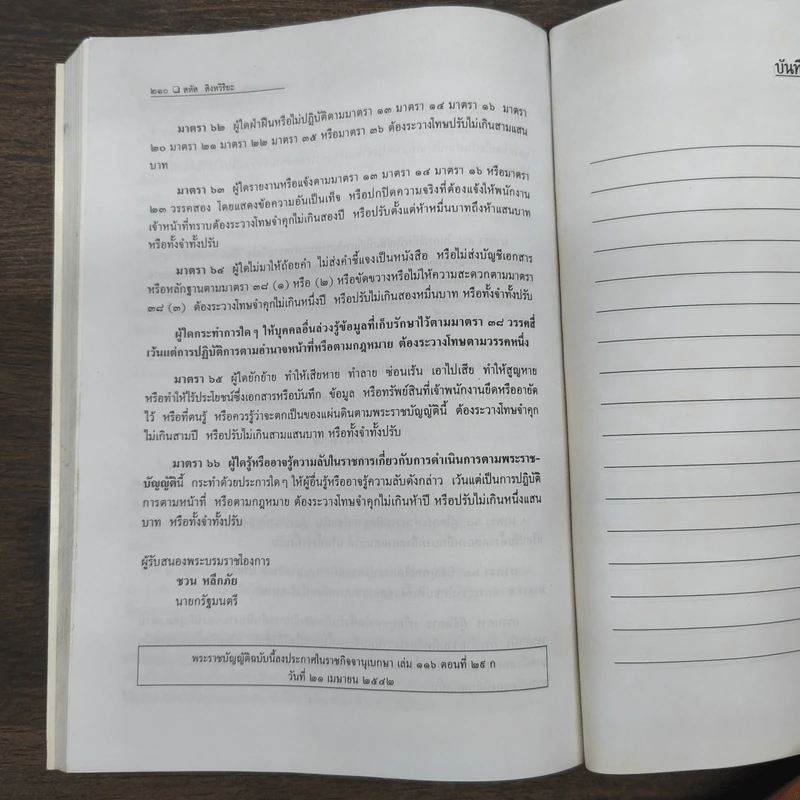 ๒๑๐ ❏ สหัส สิงหวิริยะ
มาตรา ๖๒ ผู้ใดฝ่าฝืนหรือไม่ปฏิบัติตามมาตรา ๑๓ มาตรา ๑๔ มาตรา ๑๖ มาตรา
๒๐ มาตรา ๒๑ มาตรา ๒๒ มาตรา ๓๕ หรือมาตรา ๓๖ ต้องระวางโทษปรับไม่เกินสามแสน
บาท
มาตรา ๖๓ ผู้ใดรายงานหรือแจ้งตามมาตรา ๑๓ มาตรา ๑๔ มาตรา ๑๖ หรือมาตรา
๒๓ วรรคสอง โดยแสดงข้อความอันเป็นเท็จ หรือปกปิดความจริงที่ต้องแจ้งให้พนักงาน
เจ้าหน้าที่ทราบต้องระวางโทษจำคุกไม่เกินสองปี หรือปรับตั้งแต่ห้าหมื่นบาทถึงห้าแสนบาท
หรือทั้งจำทั้งปรับ
มาตรา ๖๔ ผู้ใดไม่มาให้ถ้อยคำ ไม่ส่งคำชี้แจงเป็นหนังสือ หรือไม่ส่งบัญชีเอกสาร
หรือหลักฐานตามมาตรา ๓๘ (๑) หรือ (๒) หรือขัดขวางหรือไม่ให้ความสะดวกตามมาตรา
๓๘ (๓) ต้องระวางโทษจำคุกไม่เกินหนึ่งปี หรือปรับไม่เกินสองหมื่นบาท หรือทั้งจำทั้งปรับ
ผู้ใดกระทำการใดๆ ให้บุคคลอื่นล่วงรู้ข้อมูลที่เก็บรักษาไว้ตามมาตรา ๓๘ วรรคสี่
เว้นแต่การปฏิบัติการตามอำนาจหน้าที่หรือตามกฎหมาย ต้องระวางโทษตามวรรคหนึ่ง
มาตรา ๖๕ ผู้ใดยักย้าย ทำให้เสียหาย ทำลาย ซ่อนเร้น เอาไปเสีย ทำให้สูญหาย
หรือทำให้ไร้ประโยชน์ซึ่งเอกสารหรือบันทึก ข้อมูล หรือทรัพย์สินที่เจ้าพนักงานยึดหรืออายัด
ไว้ หรือที่ตนรู้ หรือควรรู้ว่าจะตกเป็นของแผ่นดินตามพระราชบัญญัตินี้ ต้องระวางโทษจำคุก
ไม่เกินสามปี หรือปรับไม่เกินสามแสนบาท หรือทั้งจำทั้งปรับ
มาตรา ๖๖ ผู้ใดรู้หรืออาจรู้ความลับในราชการเกี่ยวกับการดำเนินการตามพระราช-
บัญญัตินี้ กระทำด้วยประการใดๆ ให้ผู้อื่นรู้หรืออาจรู้ความลับดังกล่าว เว้นแต่เป็นการปฏิบัติ
การตามหน้าที่ หรือตามกฎหมาย ต้องระวางโทษจำคุกไม่เกินห้าปี หรือปรับไม่เกินหนึ่งแสน
บาท หรือทั้งจำทั้งปรับ
ผู้รับสนองพระบรมราชโองการ
ชวน หลีกภัย
นายกรัฐมนตรี
พระราชบัญญัติฉบับนี้ลงประกาศในราชกิจจานุเบกษา เล่ม ๑๑๖ ตอนที่ ๒๙ ก
วันที่ ๒๑ เมษายน ๒๕๔๒